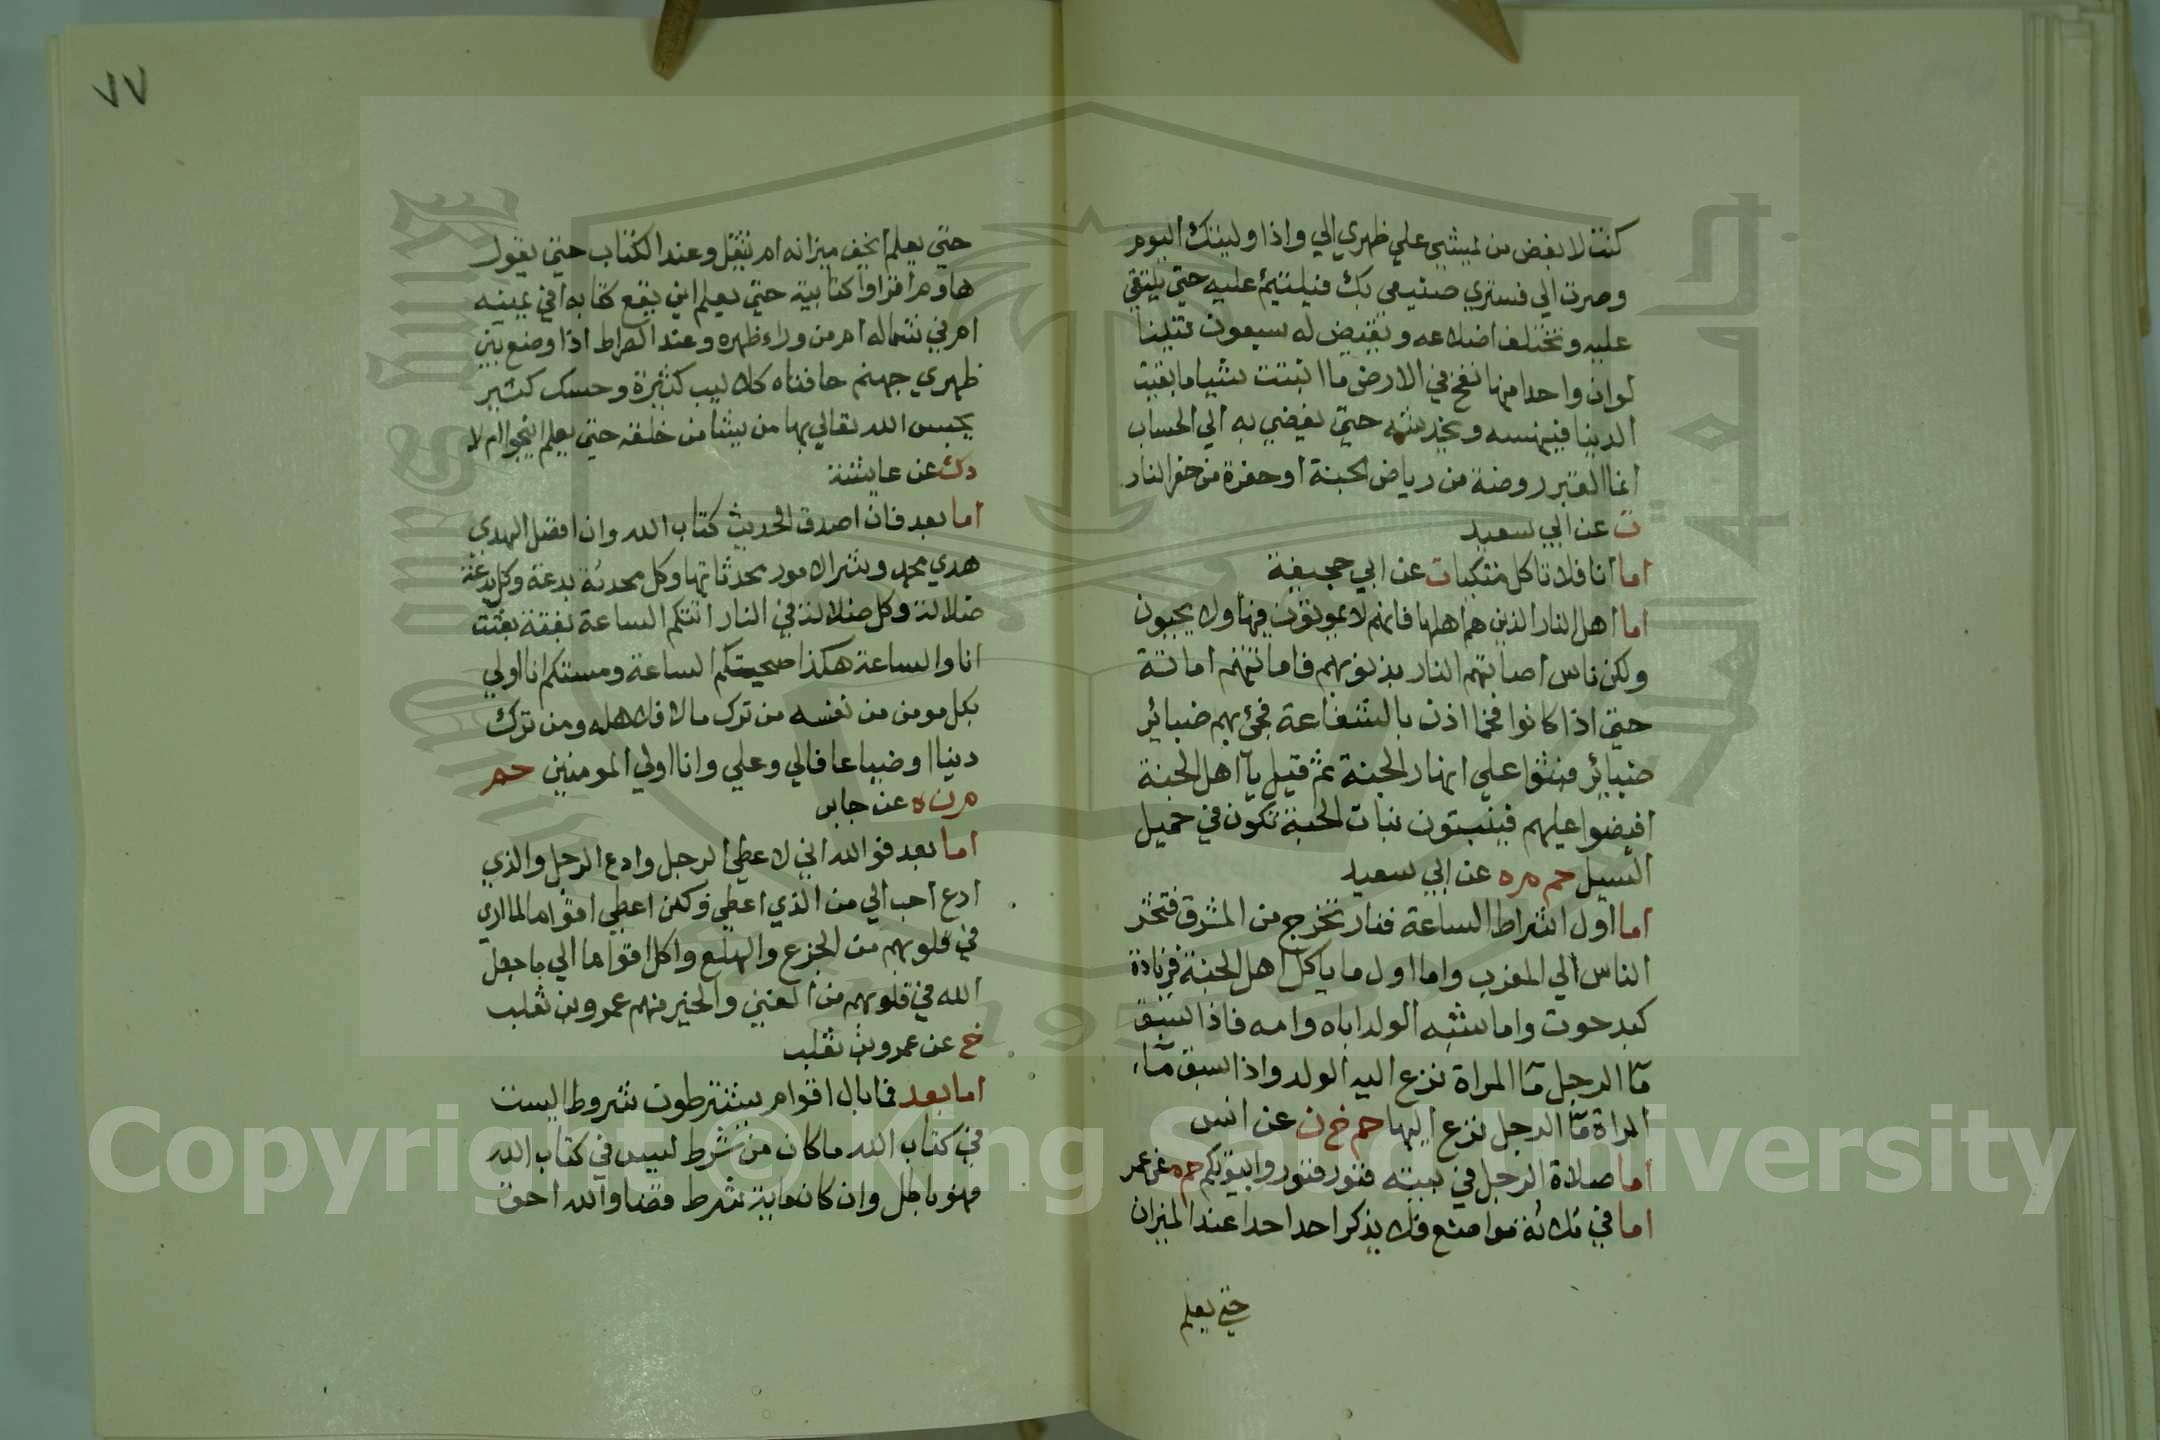 كنت لا بغض من يمشي علي ظهري الي واذا وليتك اليوم
وصرت الي فستري صنيعي بك فيلتيم عليه حتي يلتقي
عليه وتختلف اضلاعه ويقيض له سبعون تنينا
لو ان واحدا منها نفخ في الارض ما انبتت شيا ما بقيت
الدنيا فينهسه ويخدشنه حتي يفضي به الي الحساب
انما القبر روضة من رياض الجنة او حفرة من حفر النار
ت عن ابي سعيد
اما انا فلا تاكل متكيا ت عن ابي جحيفة
اما اهل النار الذين هم اهلها فانهم لا يموتون فيها ولا يحيون
ولكن ناس اصابتهم النار بذنوبهم فاماتتهم اماتة
حتي اذا كانوا فحما اذن بالشفاعة فجئ بهم ضبائر
ضبائر فبثوا علي انهار الجنة ثم قيل يا اهل الجنة
افيضوا عليهم فينبتون نبات الحبة تكون في حميل
السيل حم م ه عن ابي سعيد
اما اول اشراط الساعة فنار تخرج من المشرق فتحشر
الناس الي المغرب واما اول ما ياكل اهل الجنة فزيادة
كبد حوت واما شبه الولد اباه وامه فاذا سبق
مآ الرجل مآ المراة نزع اليه الولد واذا سبق مآء
المراة مآ الرجل نزع اليها حم خ ن عن انس
اما صلاة الرجل في بيته فنور فنوروا بيوتكم حم ه عن عمر
اما في ثلاثة مواضع فلا يذكر احد احدا عند الميزان
حتي يعلم
٧٧
حتي يعلم ايخف ميزانه ام يثقل وعند الكتاب حين يقول
هاوم اقراوا كتابيه حتي يعلم اين يقع كتابه افي يمينه
ام في شماله ام من وراء ظهره وعند الصراط اذا وضع بين
ظهري جهنم حافتاه كلاليب كثيرة وحسك كثير
يحبس الله تعالي بها من يشا من خلقه حتي يعلم اينجوا ام لا
د ك عن عايشة
اما بعد فان اصدق الحديث كتاب الله وان افضل الهدي
هدي محمد وشر الامور محدثاتها وكل محدثة بدعة وكل بدعة
ضلالة وكل ضلالة في النار اتتكم الساعة بغتة بعثت
انا والساعة هكذا صحبتكم الساعة ومستكم انا اولي
بكل مومن من نفسه من ترك مالا فلاهله ومن ترك
دينا او ضياعا فالي وعلي وانا اولي المومنين حم
م ن ه عن جابر
اما بعد فوالله اني لاعطي الرجل وادع الرجل والذي
ادع احب الي من الذي اعطي ولكن اعطي اقواما لما اري
في قلوبهم من الجزع والهلع واكل اقواما الي ما جعل
الله في قلوبهم من الغني والخير منهم عمرو بن تغلب
خ عن عمرو بن تغلب
اما بعد فما بال اقوام يشترطون شروطا ليست
في كتاب الله ما كان من شرط ليس في كتاب الله
فهو باطل وان كان ماية شرط قضا والله احق
Copyright © King Saud University